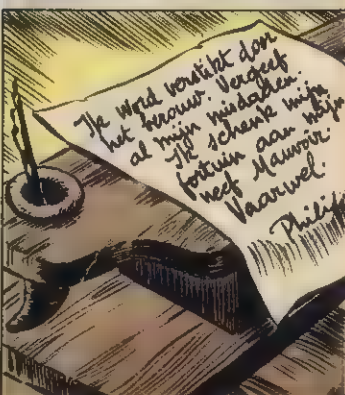 Ik word verstikt door
het berouw. Vergeef
al mijn misdaden.
Ik schenk mijn
fortuin aan mijn
neef Mauvoir.
Vaarwel.
Philip